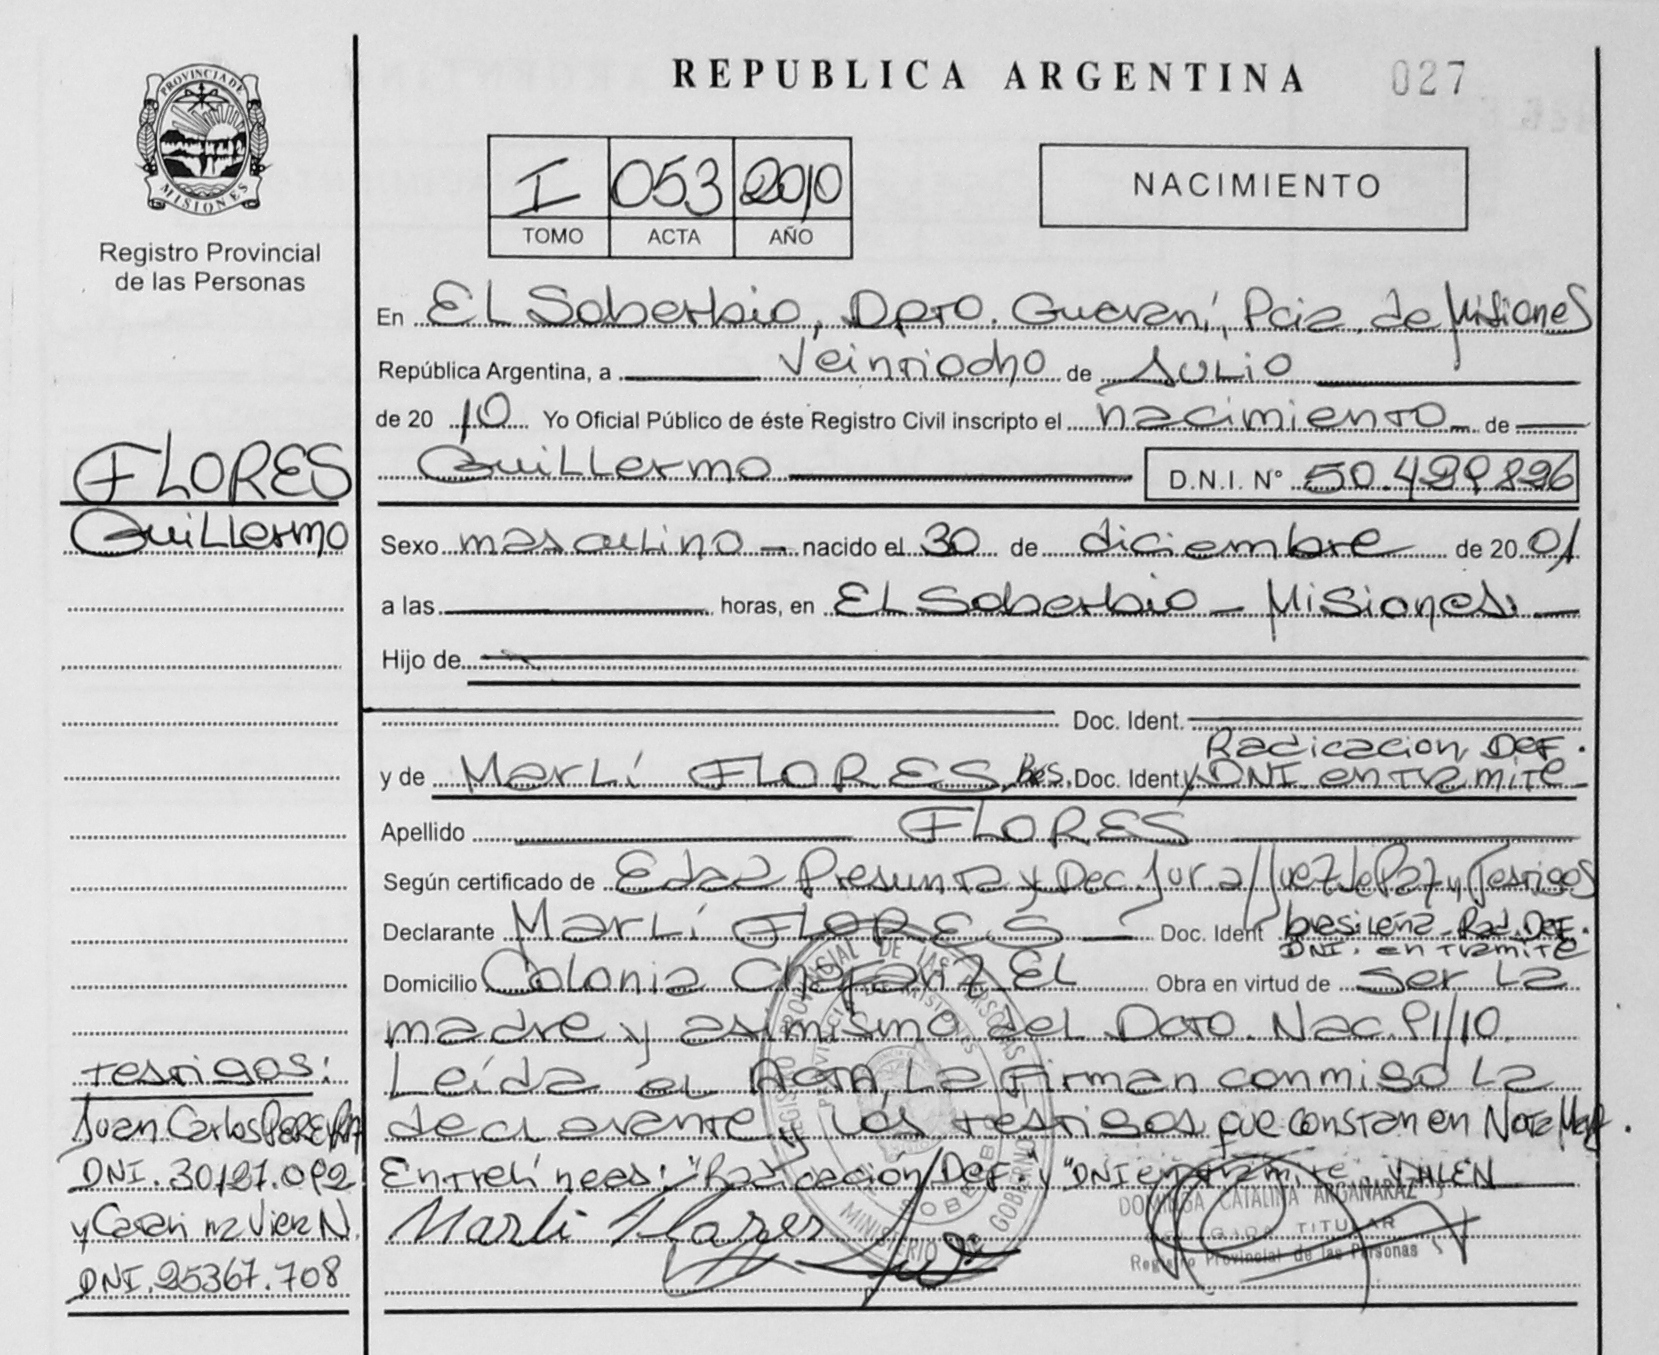 REPUBLICA ARGENTINA
027
PROVINCIA DE
MISIONES
Registro Provincial
de las Personas
I 053 2010
TOMO ACTA AÑO
NACIMIENTO
En EL Soberbio, Dpto. Guaraní, Pcia. de Misiones
República Argentina, a Veintiocho de JULIO
de 20 10 Yo Oficial Público de éste Registro Civil inscripto el nacimiento de
Guillermo D.N.I. Nº 50.499.896
FLORES
Guillermo
Sexo masculino nacido el 30 de diciembre de 20 01
a las horas, en EL Soberbio - Misiones.
Hijo de
Doc. Ident.
Radicacion Def.
y de Marlí FLORES, Doc. Ident. y DNI en tramite
Apellido FLORES
Según certificado de Edad Presunta y Dec. Jur. a/Juez de Paz y Testigos
Declarante Marlí FLORES Doc. Ident brasileña Rad. Def.
DNI. en tramite
Domicilio Colonia Chafariz EL Obra en virtud de ser la
madre y asimismo del Dcto. Nac. 91/10
Leída el Acta, la firman conmigo la
declarante y los testigos que constan en Nota Marg.
Entrelíneas: "Radicación Def." y "DNI en tramite" VALEN
Marli Flores
testigos:
Juan Carlos PEREYRA
DNI. 30127.092
y Vier N.
DNI. 25367.708
REGISTRO PROVINCIAL DE LAS PERSONAS
MINISTERIO DE GOBIERNO
DOMINGA CATALINA ARGAÑARAZ
TITULAR
Registro Provincial de las Personas